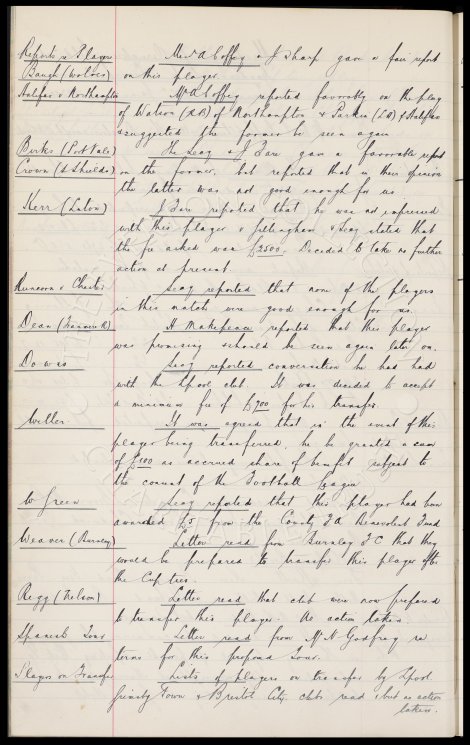 Reports on Players Mr A Coffey & J Sharp gave a fair report
Baugh (Wolves) on this player.
Halifax v Northampton Mr A Coffey reported favorably on the play
of Watson (R.B) of Northampton & Parker (L.B) of Halifax
& suggested the former be seen again
Birks (Port Vale) The Secy & J Fare gave a favorable report
Crown (S Shields) on the former, but reported that in their opinion
the latter was not good enough for us.
Kerr (Luton) J Fare reported that he was not impressed
with this player v Gillingham. Secy stated that
the fee asked was £2500. Decided to take no further
action at present.
Runcorn v Chester Secy reported that none of the players
in this match were good enough for us.
Dean (Tranmere R) H Makepeace reported that this player
was promising & should be seen again later on.
Do was Secy reported conversation he had had
with the Lpool club. It was decided to accept
a minimum fee of £900 for his transfer.
Weller It was agreed that in the event of this
player being transferred, he be granted a sum
of £500 as accrued share of benefit subject to
the consent of the Football League
W Green Secy reported that this player had been
awarded £5 from the County FA Benevolent Fund
Weaver (Burnley) Letter read from Burnley F C that they
would be prepared to transfer this player after
the Cup ties.
Rigg (Nelson) Letter read that club were now prepared
to transfer this player. No action taken.
Spanish Tour Letter read from M N Godfrey re
terms for this proposed Tour.
Players on Transfer Lists of players on transfer by Lpool
Grimsby Town & Bristol City clubs read, but no action
taken.